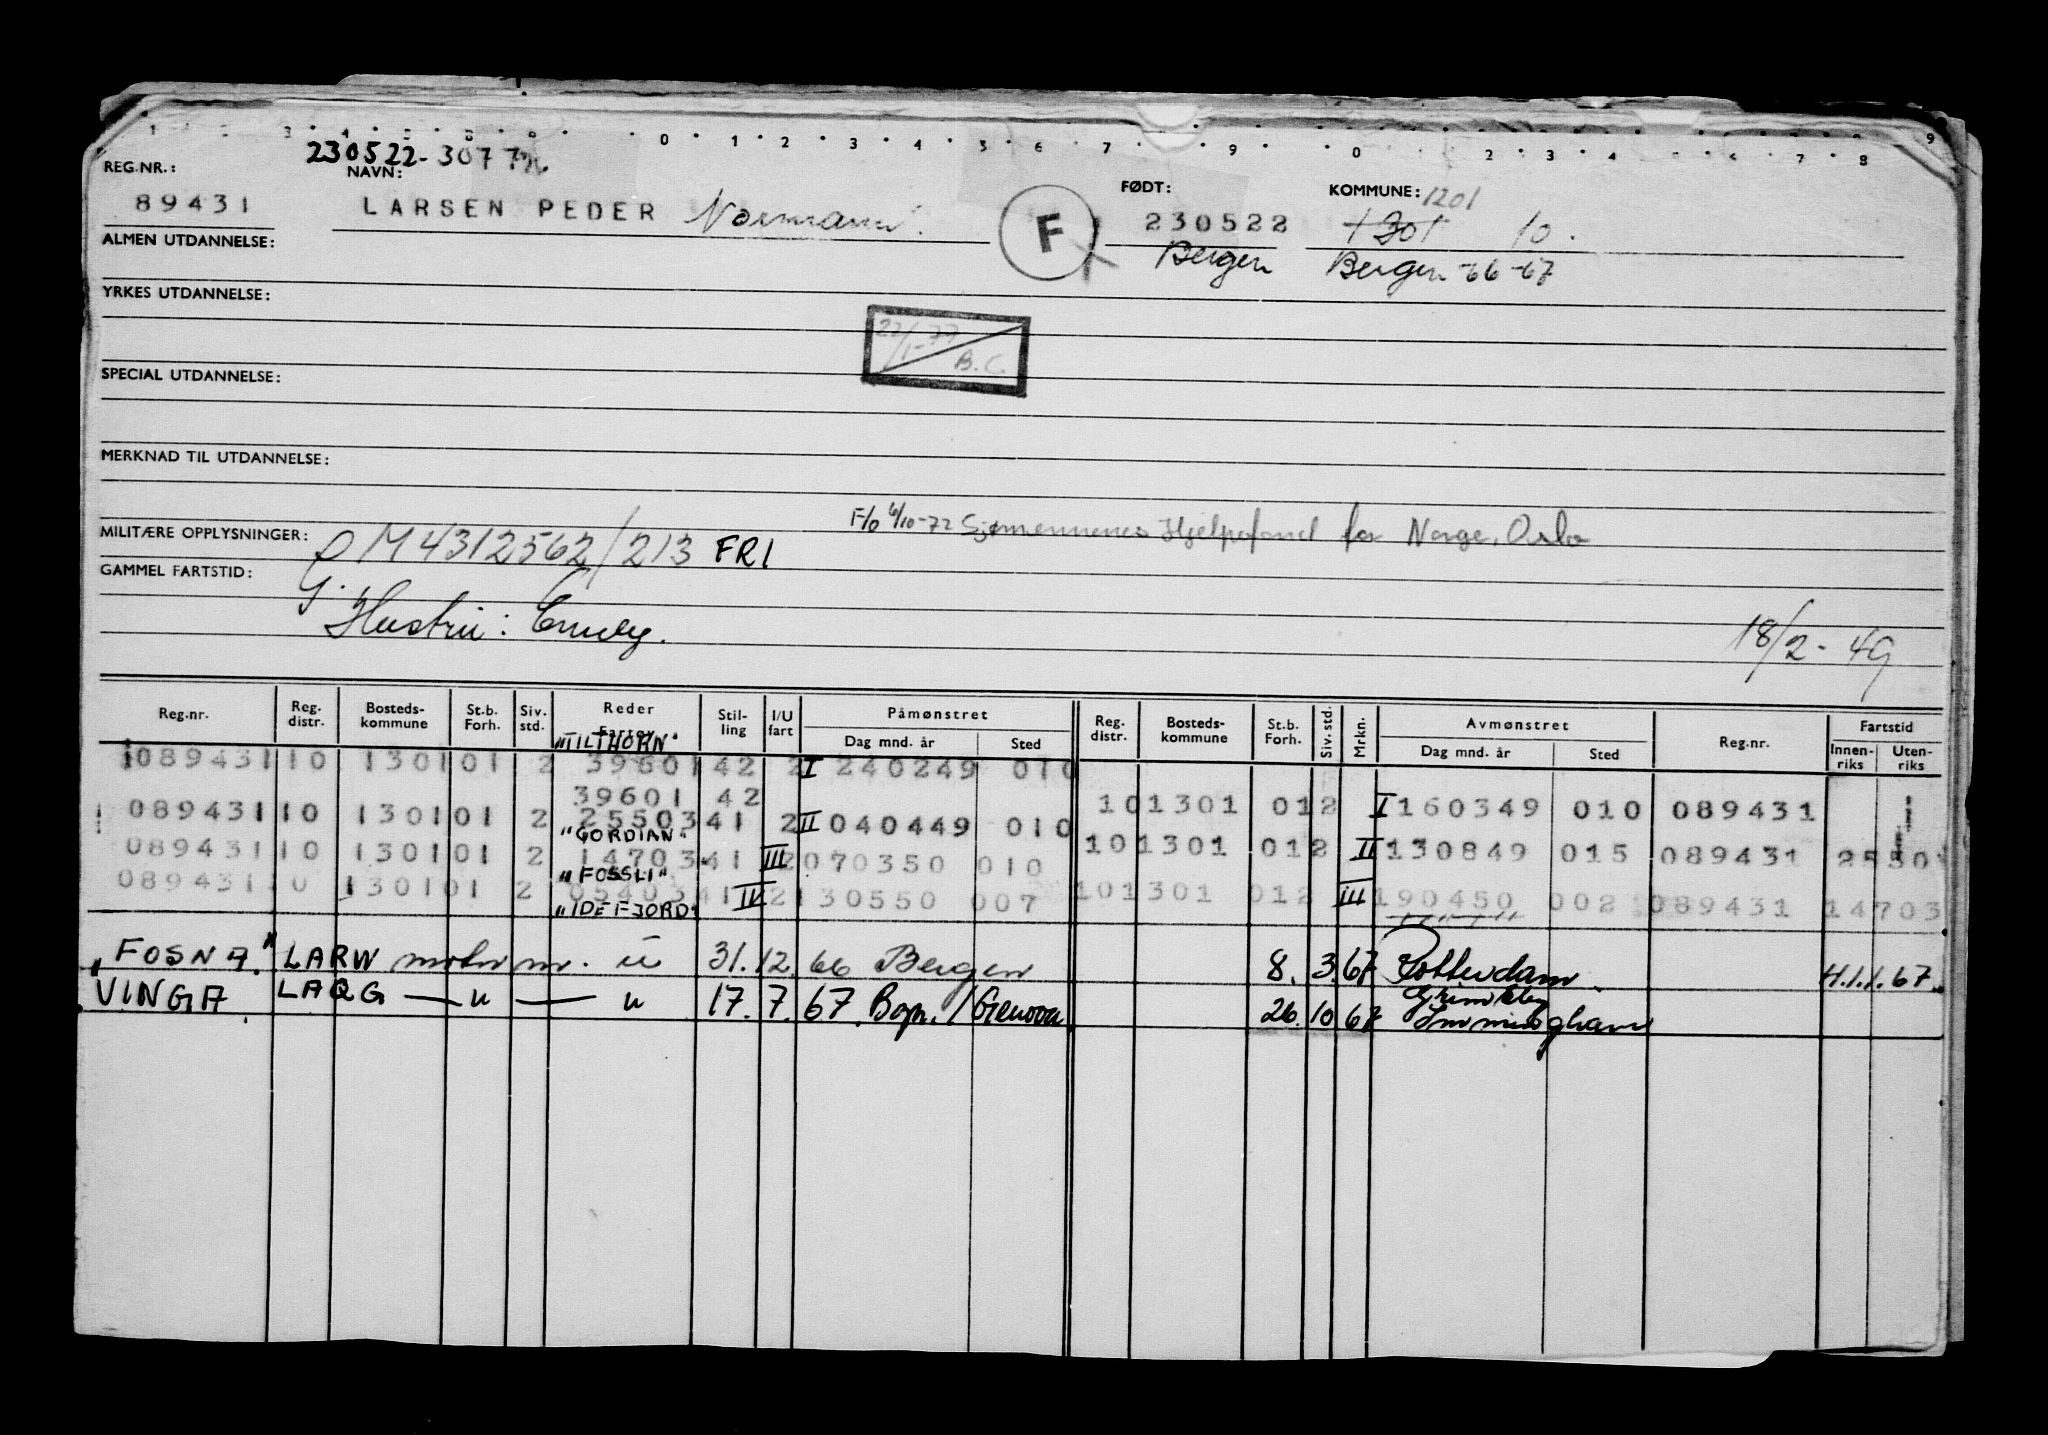 230522-307
REG.NR.: NAVN: FØDT: KOMMUNE: 1201
89431 LARSEN PEDER Normann. F 230522 1301 10.
ALMEN UTDANNELSE: Bergen Bergen -66-67
YRKES UTDANNELSE:
22/1-77
B.C.
SPECIAL UTDANNELSE:
MERKNAD TIL UTDANNELSE:
F/o 6/10-72 Sjømennenes Hjelpefond for Norge, Oslo
MILITÆRE OPPLYSNINGER: M4312562/213 FRI
GAMMEL FARTSTID:
Hustru: Emely.
18/2-49
Reg.nr. Reg. distr. Bosteds-kommune St.b. Forh. Siv. std. Reder Fartøy Stil-ling I/U fart Påmønstret Dag mnd. år Sted Reg. distr. Bosteds-kommune St.b. Forh. Siv. std. Mrkn. Avmønstret Dag mnd. år Sted Reg.nr. Fartstid Innen-riks Uten-riks
"TILTHORN"
089431 10 1301 01 2 39601 42 2 I 240249 010
39601 42 10 1301 01 2 I 160349 010 089431
089431 10 1301 01 2 25503 41 2 II 040449 010
"GORDIAN" 10 1301 01 2 II 130849 015 089431 25503
089431 10 1301 01 2 14703 41 III 2 070350 010
"FOSSLI" 10 1301 01 2 III 190450 002 089431 14703
089431 10 1301 01 2 05403 41 IV 2 130550 007
"IDEFJORD"
"FOSNA" LARW motorm. u 31.12.66 Bergen 8.3.67 Rotterdam H.1.1.67.
VINGA LAQG — " — u 17.7.67 Bgn./Genova 26.10.67 Grimsby Immingham